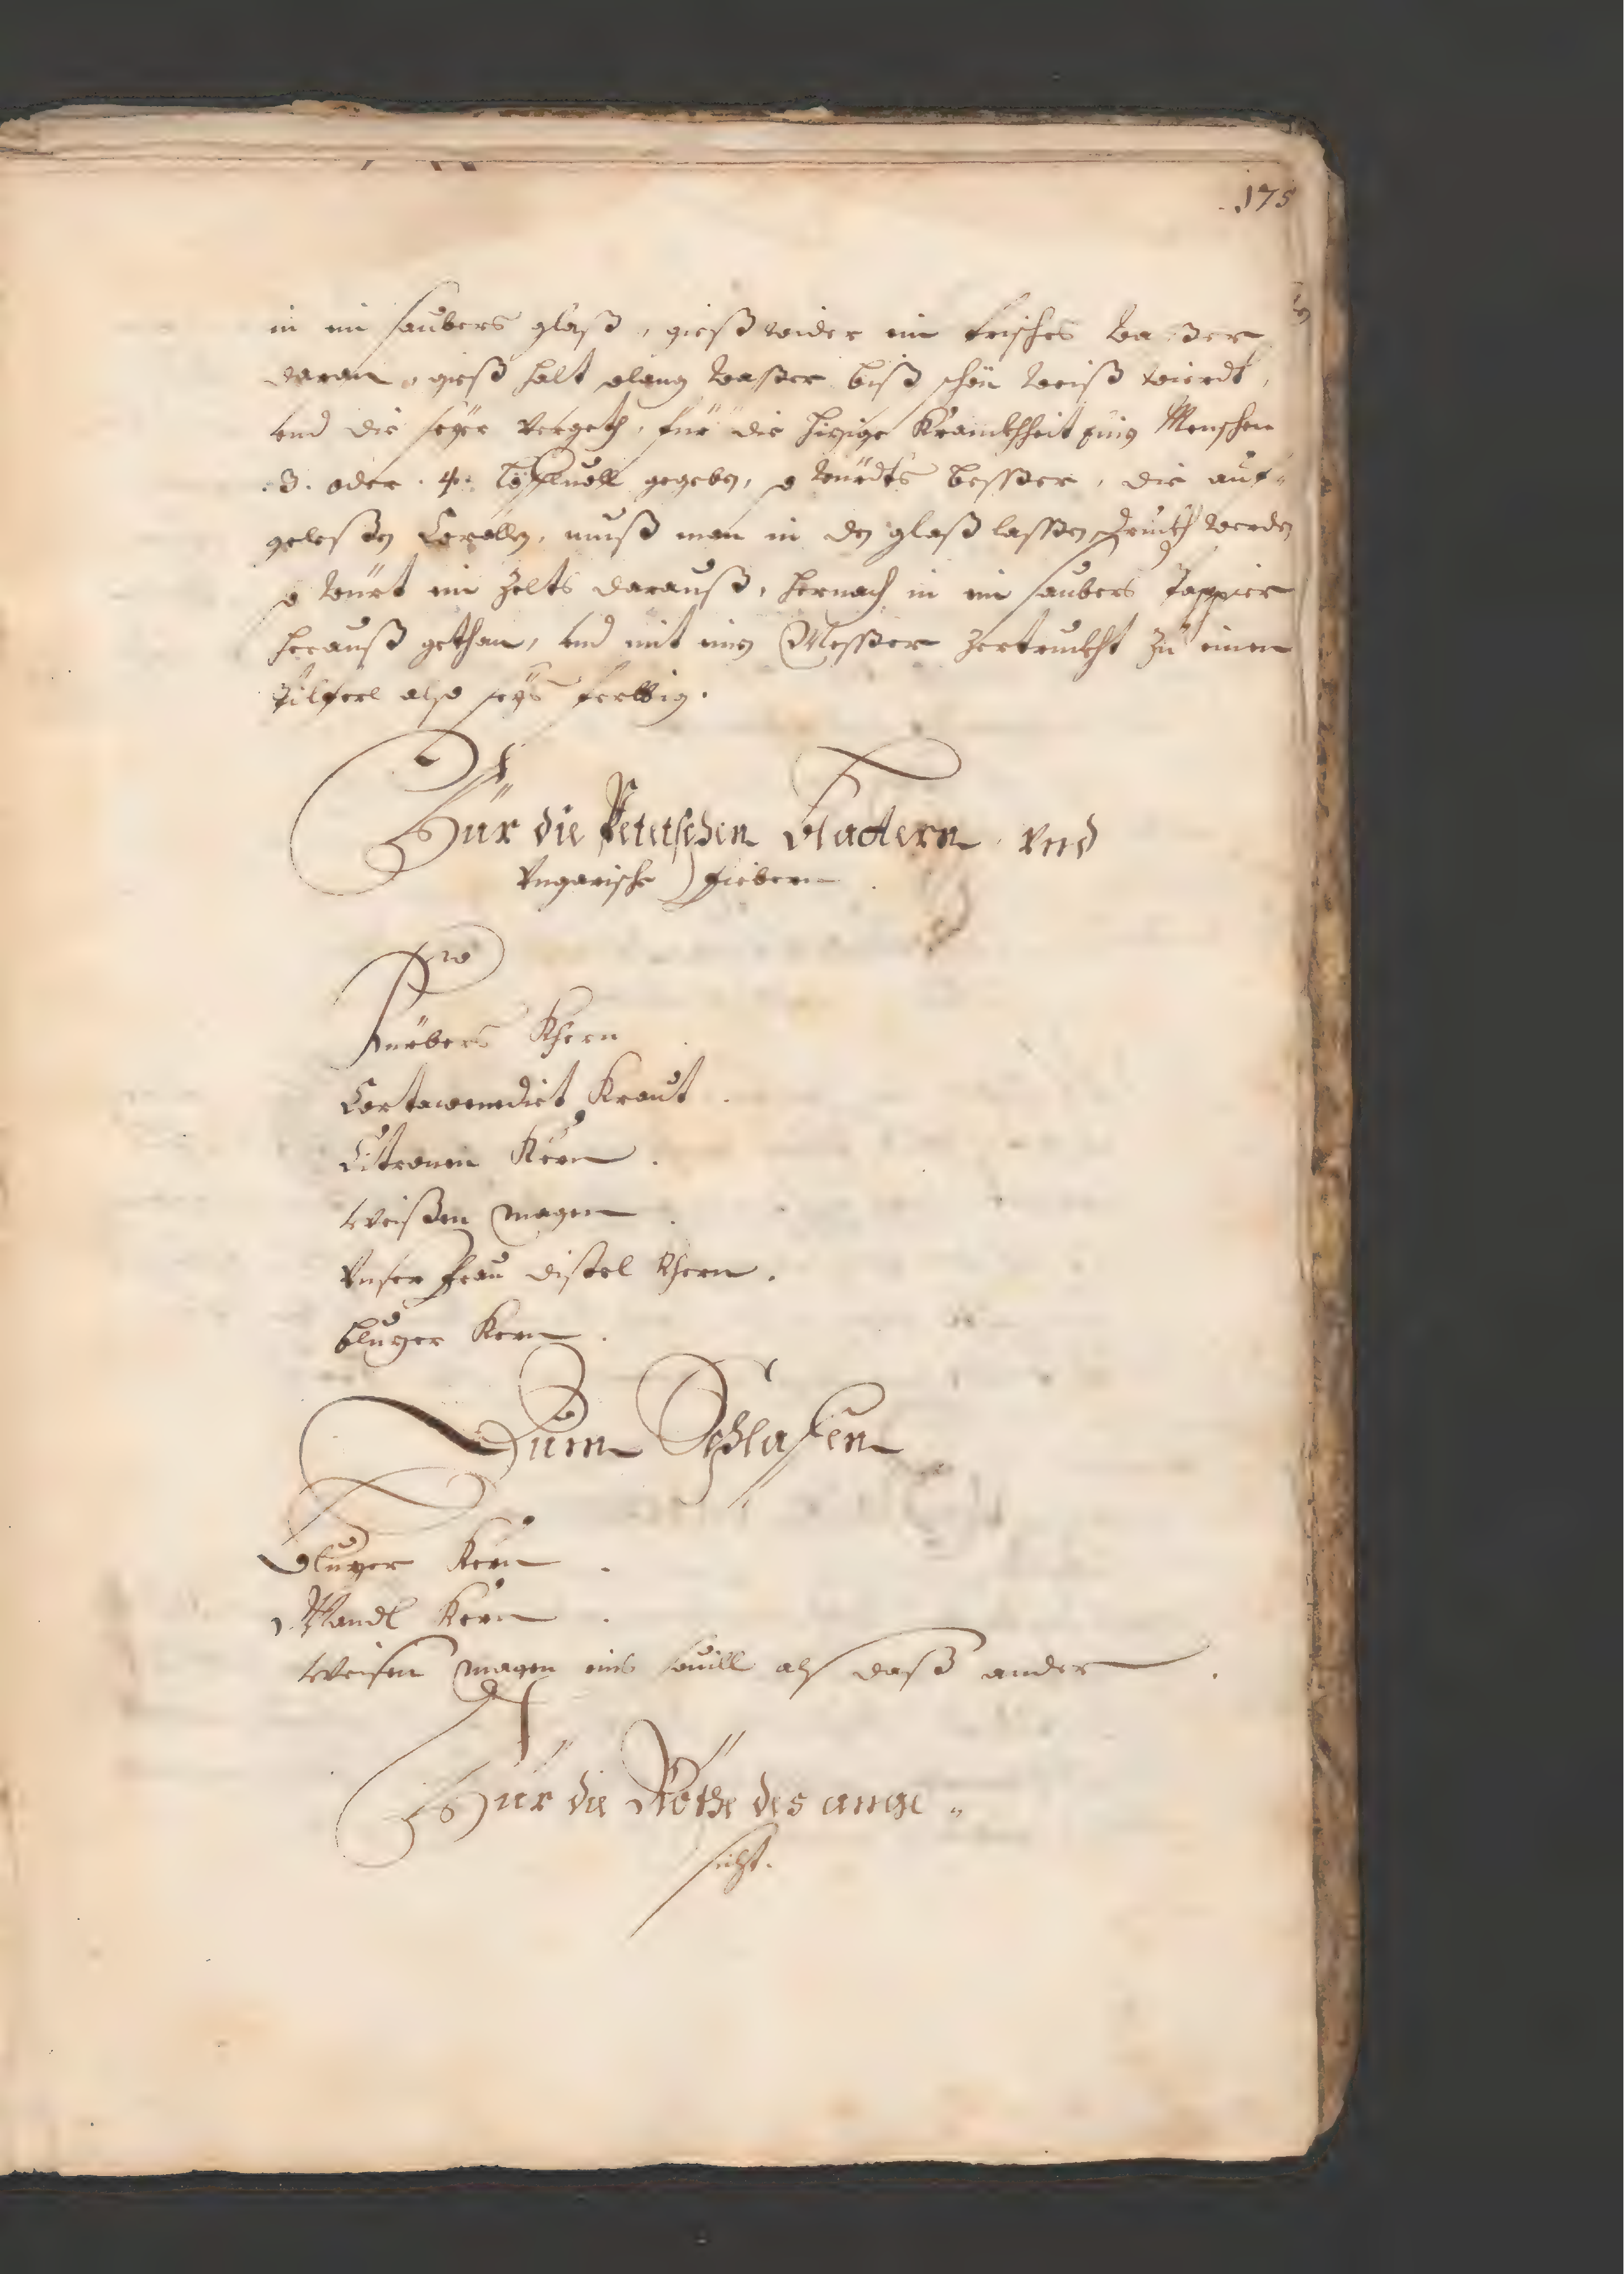 175
in ein saubers glaß, gieß wider ein frisches Waßer
daran, gieß halt solang Waßer biß schön weiß wierdt,
vnd die seyer vergeth, für die hizige Krannkhheit einen Menschen
.3. oder .4. Löffluoll gegeben, so würdts besser, die auf-
gelesßen Corallen, muß man in den glaß lassen druckh werden
so würt ein Zelts darauß, hernach in ein saubers Pappier
herauß gethan, vnd mit einen Messer zertruckht zu einen
Pilferl also seys ferttig.
Für die Petetschen Blattern vnd
Vngarische fiebern
Rp
Kürbers Khern
Cartawenedict Kraut.
Citronen Kern.
Weißen magen.
Vnser frau distel Khern.
bluzer Kern.
Zum Schlafen
Bluzer Kern.
Mandl Kern.
Weisen magen eins souill als daß ander.
Für die Röthe des ange-
sicht.